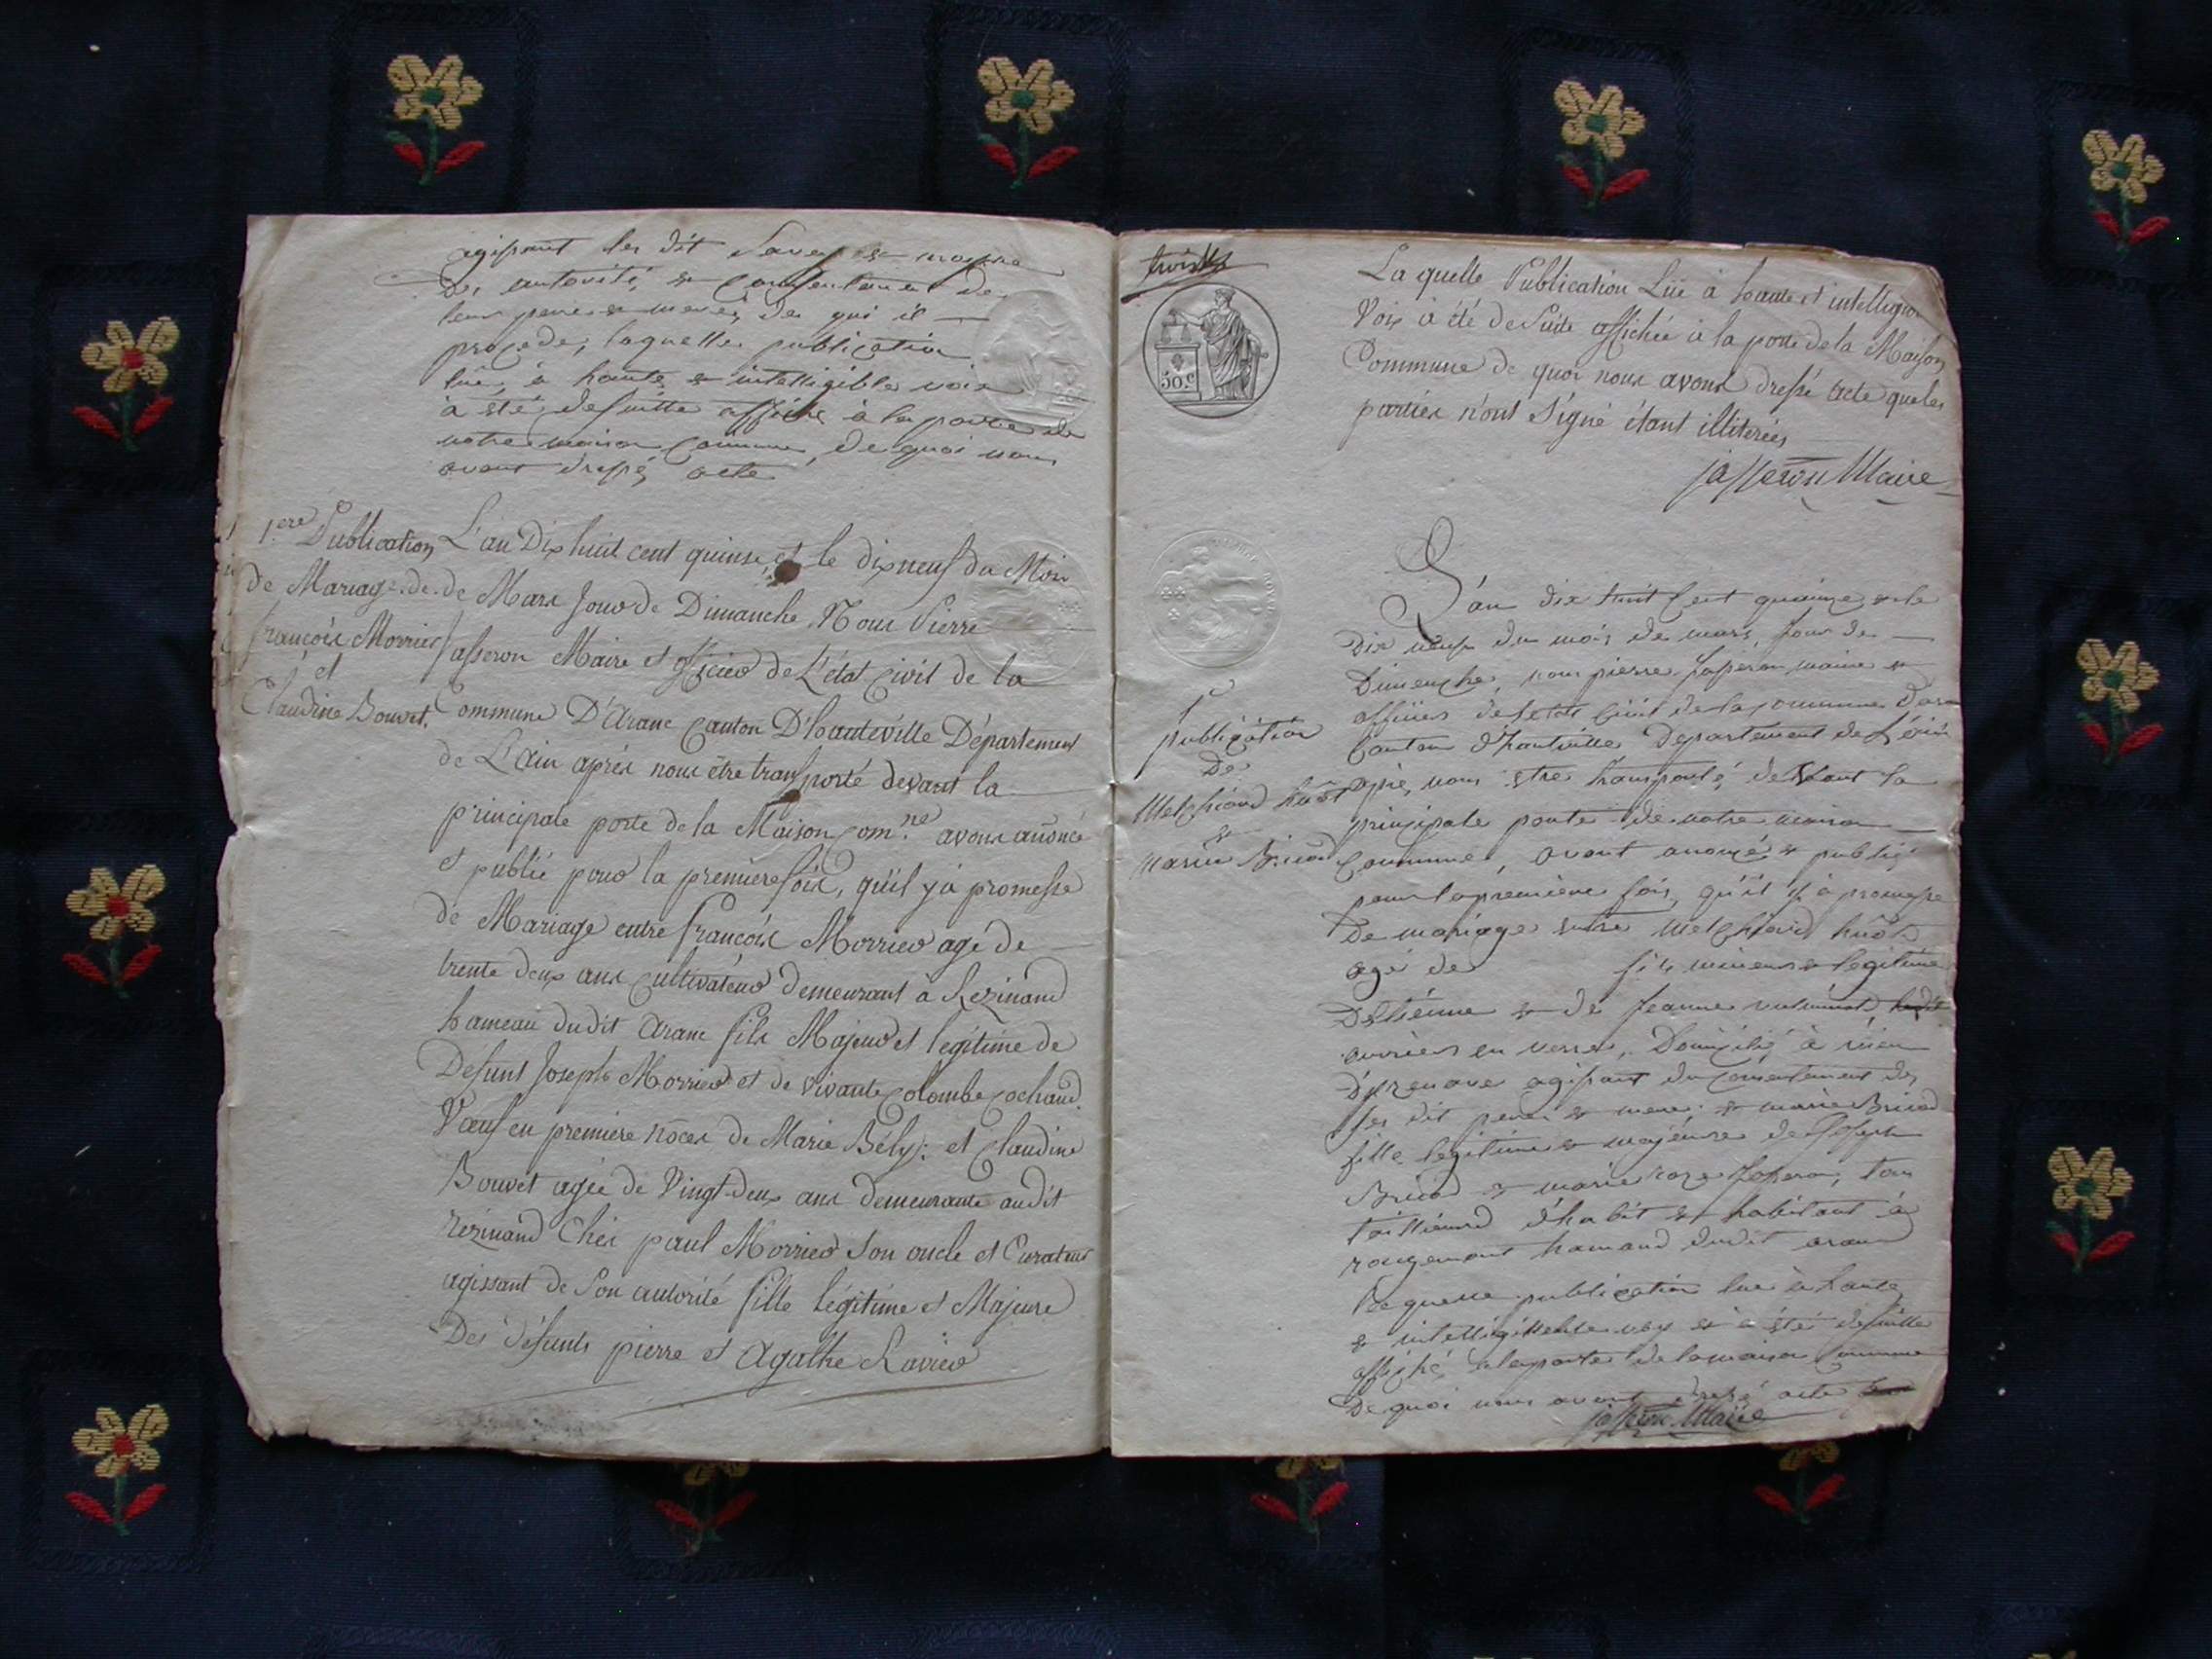 agissant les dit Savey &
des autorité, & consentement de
leur peres & meres, de qui il
procede, laquelle publication
lue, à haute & intelligible voix
à été, desuitte affiche à la porte de
notre maison commune, de quoi nous
avons dressé, acte
1.ere Publication
de Mariage de
françois Morrier
et
Claudine Bouvet.
L'an Dix huit cent quinse, et le dix neuf du Mois
de Mars Jour de Dimanche. Nous Pierre
Jasseron Maire et officier de L'état Civil de la
Commune D'Aranc Canton D'hauteville Département
de L'Ain après nous être transporté devant la
principale porte de la Maison Com.ne avons anoncé
et publié pour la premiere fois, qu'il y à promesse
de Mariage entre françois Morrier agé de
trente deux ans Cultivateur demeurant à Rezinand
hameau dudit Aranc fils Majeur et legitime de
Defunt Joseph Morrier et de vivante Colombe Cochand.
Vœuf en premiere nôces de Marie Bély: et Claudine
Bouvet agée de Vingt-deux ans demeurante audit
Rézinand Chéz paul Morrier Son oncle et Curateur
agissant de Son autorité fille légitime et Majeure
Des défunts pierre et Agathe Ravier
50.C
La quelle Publication Lüe à haute et intelligible
Voix à été de Suite affichée à la porte de la Maison
Commune de quoi nous avons dressé Acte que les
parties n'ont Signé étant illiterées
jasseron Maire
1
publication
De
Melchiord huot
&
marie Bricod
L'an dix huit Cent quainze & le
Dix neuf du mois de mars, Jour de
Dimenche, nous pierre Jasseron maire &
officier deletat Civil de la commune Daran
Canton d'hautville Departement de l'ain
aprè, nous être transporté, devant la
principale porte de notre maison
commune, avont anoncé, & publié
pour la première fois, qu'il y à promesse
De mariage entre Melchiord huot
agé de fils mineur & legitime
Destienne & de Jeanne
ouvrier en verre, Domicilié à
agissant du consentement des
ses dit pere & mere; & marie Bricod
fille legitime & majeure de Joseph
Bricod & marie roze Jasseron, tous
taillieurd d'habit & habitant à
rougemont hamaud dudit aranc
laquelle publication lue à haute
& intelligible voix & à été desuitte
affiché à laporte de lamaison Commune
De quoi nous avons dressé acte
jasseron Maire